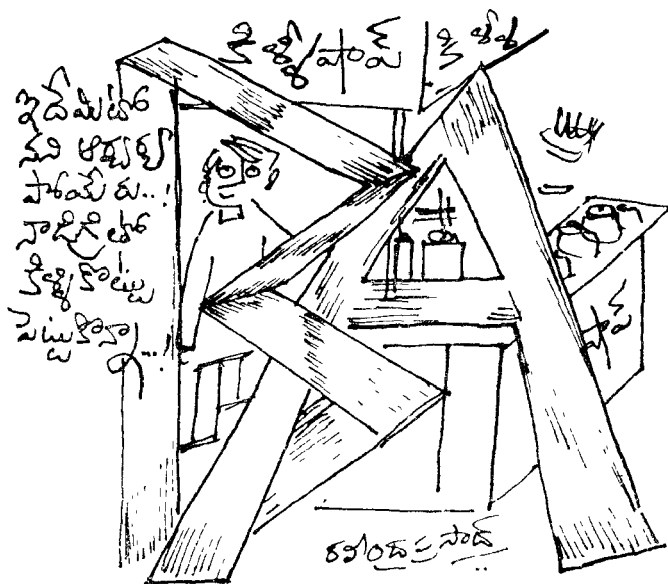 కిళ్ళీ షాప్ కిళ్ళీ
ఇదేమిటో
నని ఆశ్చర్య
పోయేరు..!
నాడిగ్రీతో
కిళ్ళీకొట్టు
పెట్టుకొన్నా...
షాప్
BA
రవీంద్ర ప్రసాద్